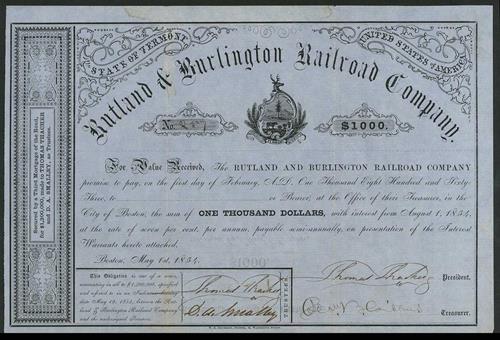 STATE OF VERMONT
UNITED STATES OF AMERICA
Rutland & Burlington Railroad Company.
No.
$1000.
Secured by a Third Mortgage of the Road,
for $1,200,000, made to THOMAS THACHER
and D. A. SMALLEY, as Trustees.
For Value Received, The RUTLAND AND BURLINGTON RAILROAD COMPANY
promise to pay, on the first day of February, A.D. One Thousand Eight Hundred and Sixty-
Three, to or Bearer, at the Office of their Treasurer, in the
City of Boston, the sum of ONE THOUSAND DOLLARS, with interest from August 1, 1854,
at the rate of seven per cent. per annum, payable semi-annually, on presentation of the Interest
Warrants hereto attached.
Boston, May 1st, 1854.
This Obligation is one of a series,
amounting in all to $1,200,000, specified
and referred to in an Indenture
May 1854, between the Rut-
land & Burlington Railroad Company
and the undersigned Trustees.
Thomas Thacher
D. A. Smalley
TRUSTEES
Thomas Thacher President.
Treasurer.